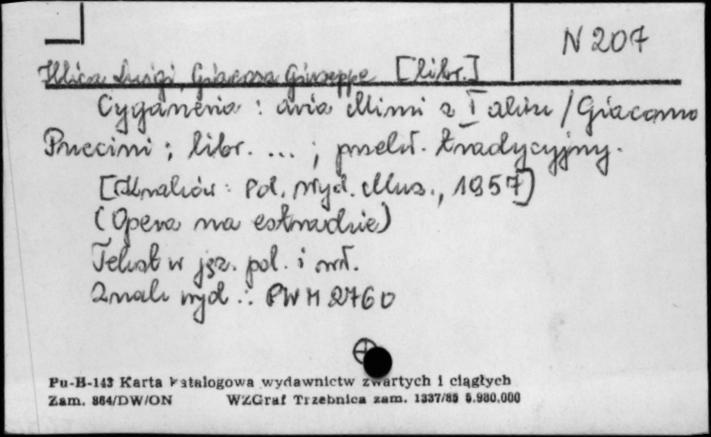 N 207
Illica Luigi, Giacosa Giuseppe [libr.]
Cyganeria : aria Mimi z I aktu / Giacomo
Puccini ; libr. ... ; przekł. tradycyjny.
[Kraków : Pol. Wyd. Muz., 1957]
(Opera na estradzie)
Tekst w jęz. pol. i wł.
Znak wyd. : PWM 2760
Pu-B-143 Karta katalogowa wydawnictw zwartych i ciągłych
Zam. 864/DW/ON WZGraf Trzebnica zam. 1337/85 5.980.000